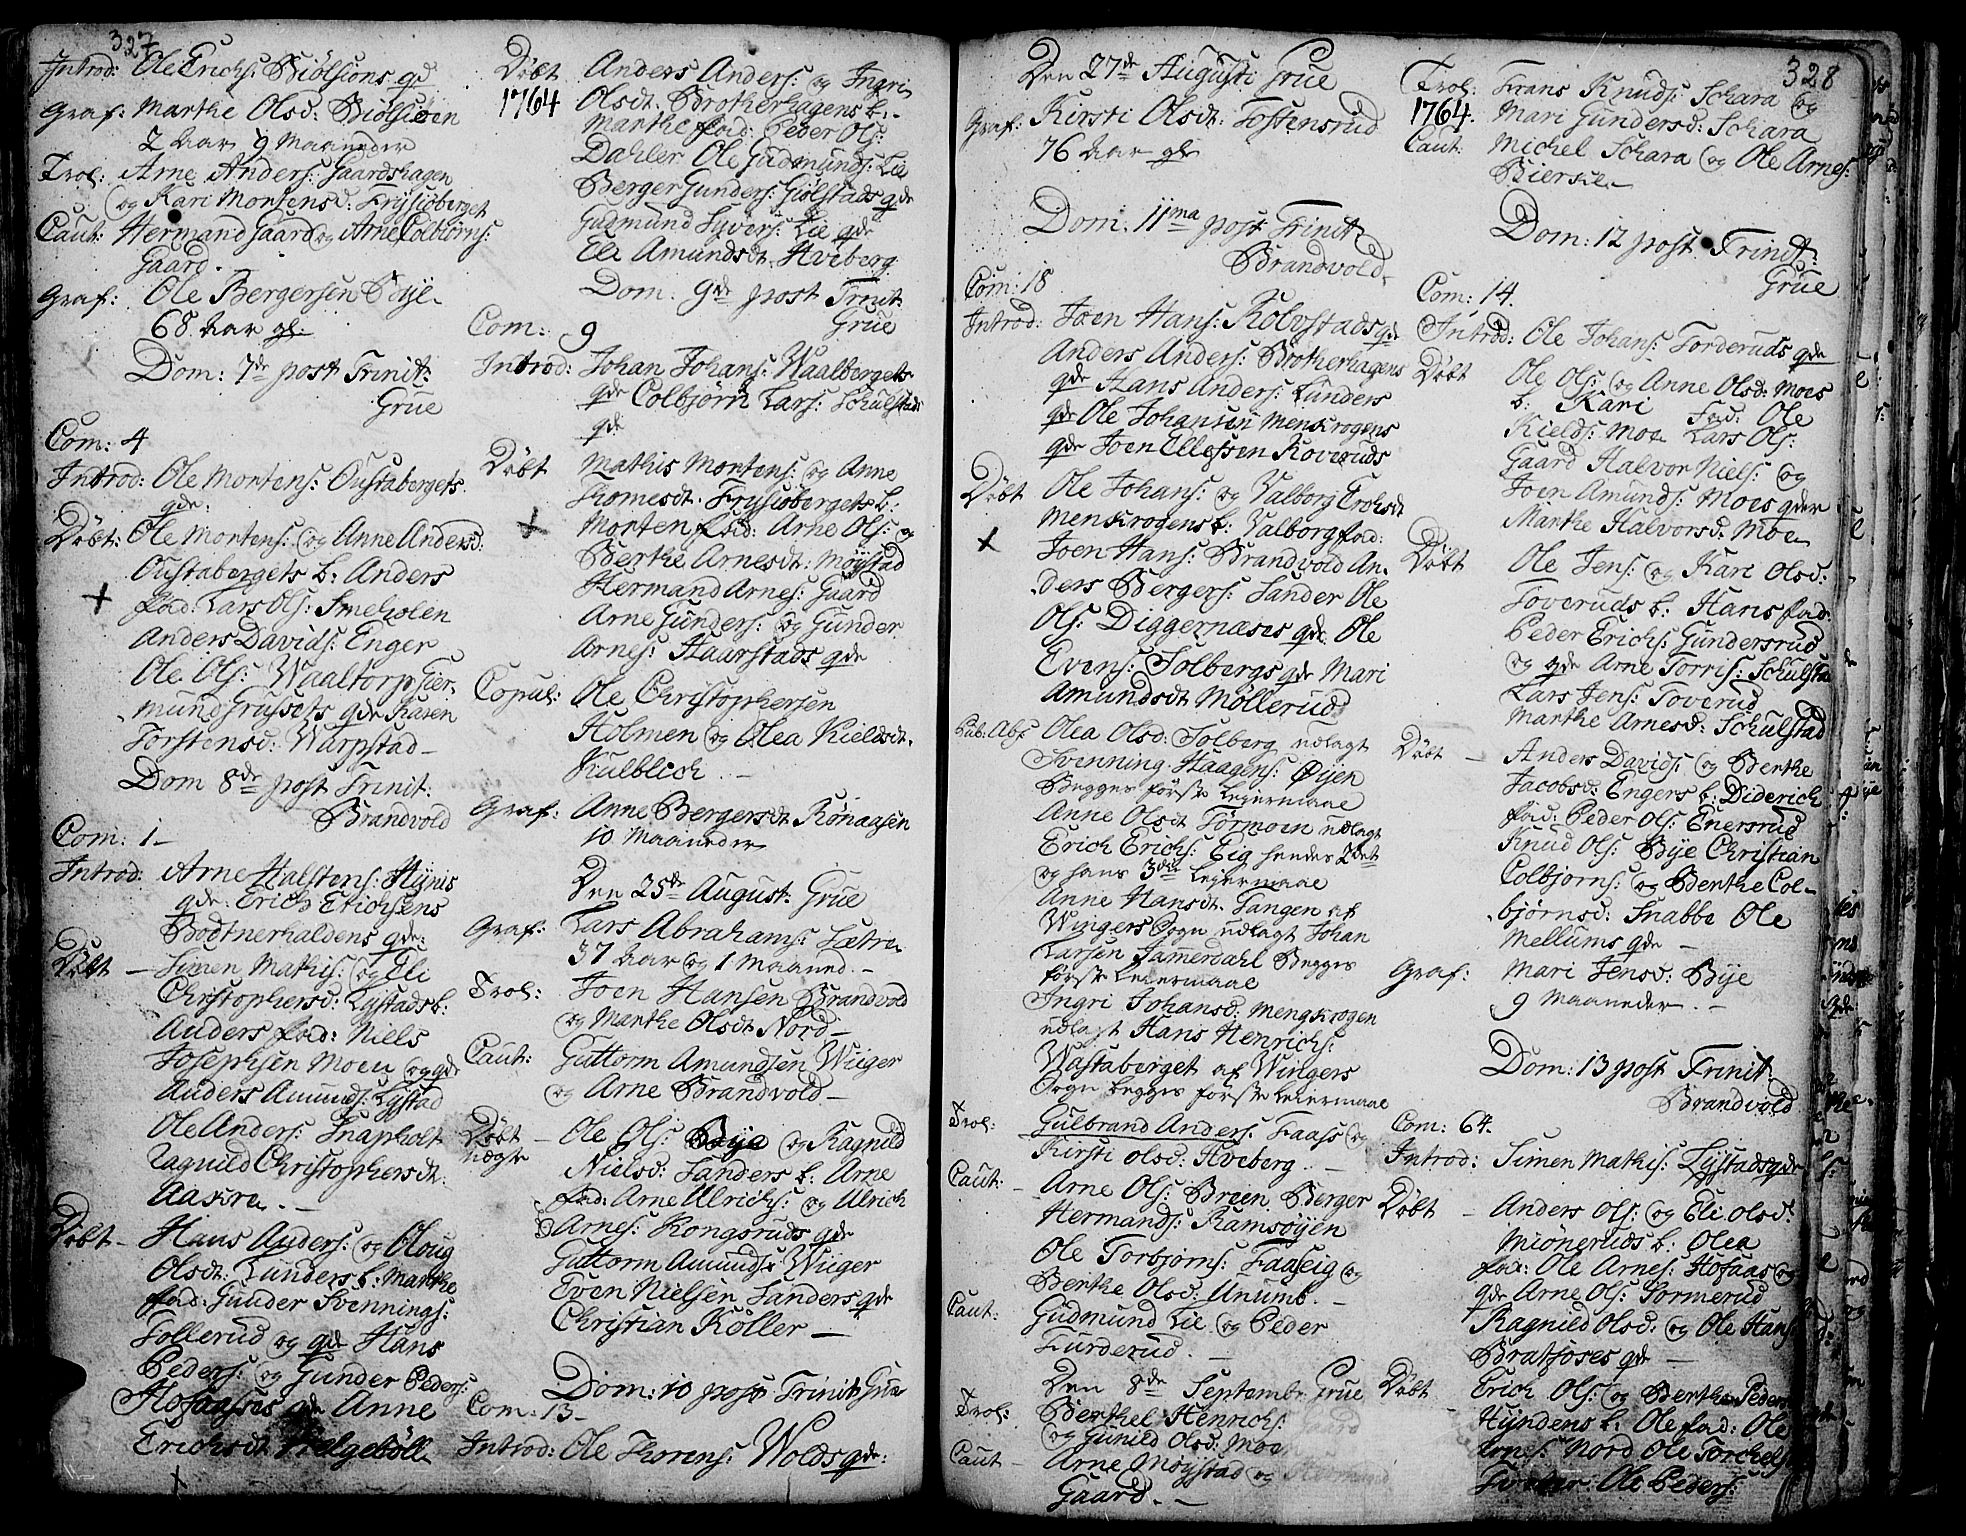 327
Introd: Ole Erichs: Biølsions qd
Graf: Marthe Olsd: Biølsioen
2 Aar 9 Maaneder
Trol: Arne Anders: Gaardshagen
og Kari Mortensd: Frysjøberget
Caut: Hermand Gaard og Arne Colbiørns:
Gaard.
Graf: Ole Bergersen Bye
68 Aar gl.
Dom: 7de post Trinit:
Grue
Com: 4
Introd: Ole Mortens: Oustabergets
qde.
Døbt: Ole Mortens: og Anne Andersd:
Oustabergets b: Anders
fad: Lars Ols: Smeholen
Anders Davids: Enger
Ole Ols: Waaltorp Gier,
mund Grussets qde Karen
Torstensd: Warpstad
Dom 8de post Trinit:
Brandvold
Com: 1
Introd: Arne Halstens: Hynis
qde. Erich Erichsens
Bodtnerhaldens qde:
Døbt Simen Mathis: og Eli
Christophersd: Lystads b:
Anders fad: Niels
Josephsen Moen og qde
Anders Amunds: Lystad
Ole Anders: Snapholt
Ragnild Christophersdt.
Aasren.
Døbt Hans Anders: og Oloug
Olsdt: Lunders b: Marthe
fad: Gunder Svennings:
Tollerud og qde Hans
Peders: og Gunder Peders:
Hofaasses qde Anne
Erichsdt Helgebøll
Døbt 1764 Anders Anders: og Ingri
Olsdt. Brotherhagens b.
Marthe fad: Peder Ols:
Dahler Ole Gudmunds: Lie
Berger Gunders: Giølstads qde
Gudmund Syvers: Lie qde
Eli Amundsdt. Hveberg
Dom: 9de post Trinit:
Grue
Com: 9
Introd: Johan Johans: Waalbergets
qde Colbjørn Lars: Schulstads
qde
Døbt Mathis Mortens: og Anne
Thomesdt. Frysjøbergets b:
Morten fad: Arne Ols: og
Berthe Arnesdt: Møystad
Hermand Arnes: Gaard
Arne Gunders: og Gunder
Arnes: Haarstads qde
Copul: Ole Christophersen
Holmen og Olea Kieldsdt.
Kulblich
Graf: Anne Bergersdt Rønaasen
10 Maaneder
Den 25de August. Grue
Graf: Lars Abrahams: Sætre
37 Aar og 1 Maaned.
Trol: Joen Hansen Brandvold
og Marthe Olsdt Nord
Caut: Guttorm Amundsen Wiger
og Arne Brandvold
Døbt Ole Ols: Bye og Ragnild
uægte Nielsd: Sanders b: Arne
fad: Arne Ulrichs: og Ulrich
Arnes: Kongsruds qde
Guttorm Amunds: Wiger
Even Nielsen Sanders qde
Christian Køller
Dom: 10 post Trinit Grue
Com: 13
Introd: Ole Thorens: Wolds qde:
328
Den 27de Augusti Grue
Graf: Kirsti Olsdt: Tostensrud
76 Aar gl
Dom: 11ma post Trinit
Brandvold
Com: 18
Introd: Joen Hans: Kolvstads qde
Anders Anders: Brotherhagens
qde Hans Anders: Lunders
qde Ole Johansen Menkrogens
qde Joen Ellefsen Koveruds
Døbt Ole Johans: og Valborg Erchsdt
Menkrogens b: Valborg fad:
Joen Hans: Brandvold An,
ders Bergers: Sander Ole
Ols: Diggernæses qde Ole
Evens: Solbergs qde Mari
Amundsdt Møllerud
Pub: Abs Olea Olsd: Solberg udlagt
Svenning Haagens: Øyen
Begges første Leiermaal
Anne Olsdt Tørmoen udlagt
Erich Erichs: Eig hendes 2det
og hans 3die Leiermaal
Anne Hansdt. Tangen af
Wingers Sogn udlagt Johan
Larsen Jammerdahl Begges
første Leiermaal
Ingri Johansd: Mengkrogen
udlagt Hans Henrichs:
Wastaberget af Wingers
Sogn begges første Leiermaal
Trol: Gulbrand Anders: Faass og
Kirsti Olsd: Hveberg.
Caut: Arne Ols: Breen Berger
Hermands: Ramsøyen
Ole Torbjørns: Faaseig og
Berthe Olsd: Unumb.
Caut: Gudmund Lie og Peder
Furderud.
Den 8de Septembr: Grue
Trol: Berthel Henrichs: Gaard
og Gunild Olsd: Moe
Caut Arne Møystad og Hermand
Gaard.
Trol: Frans Knuds: Schara og
1764. Mari Gundersd: Schara
Caut: Michel Schara og Ole Arnes:
Biersle
Dom: 12 post Trinit:
Grue
Com: 14.
Introd: Ole Johans: Torderuds qde
Døbt Ole Ols: og Anne Olsd: Moes
b. Kari Fad: Ole
Kields: Moe Lars Ols:
Gaard Halvor Niels: og
Joen Amunds: Moes qder
Marthe Halvorsd: Moe
Døbt Ole Jens: og Kari Olsd:
Toveruds b: Hans fad:
Peder Erichs: Gundersrud
og qde Arne Torris: Schulsta
Lars Jens: Toverud
Marthe Arnesd: Schulstad
Døbt Anders Davids: og Berthe
Jacobsd: Engers b: Diderich
fad: Peder Ols: Enersrud
Knud Ols: Bye Christian
Colbjørns: og Berthe Col-
bjørnsd: Snabbe Ole
Mellums qde
Graf: Mari Jensd: Bye
9 Maaneder.
Dom: 13 post Trinit
Brandvold
Com: 64.
Introd: Simen Mathis: Lystads qde
Døbt Anders Ols: og Eli Olsd:
Mioneruds b: Olea
fad: Ole Arnes: Hofaas og
qde Arne Ols: Tormerud
Ragnild Olsd: og Ole Hans:
Bratfoses qde
Døbt Erich Ols: og Berthe Peders
Hyndens b: Ole fad: Ole
Arnes: Nord Ole Torchels
Ole Peders: